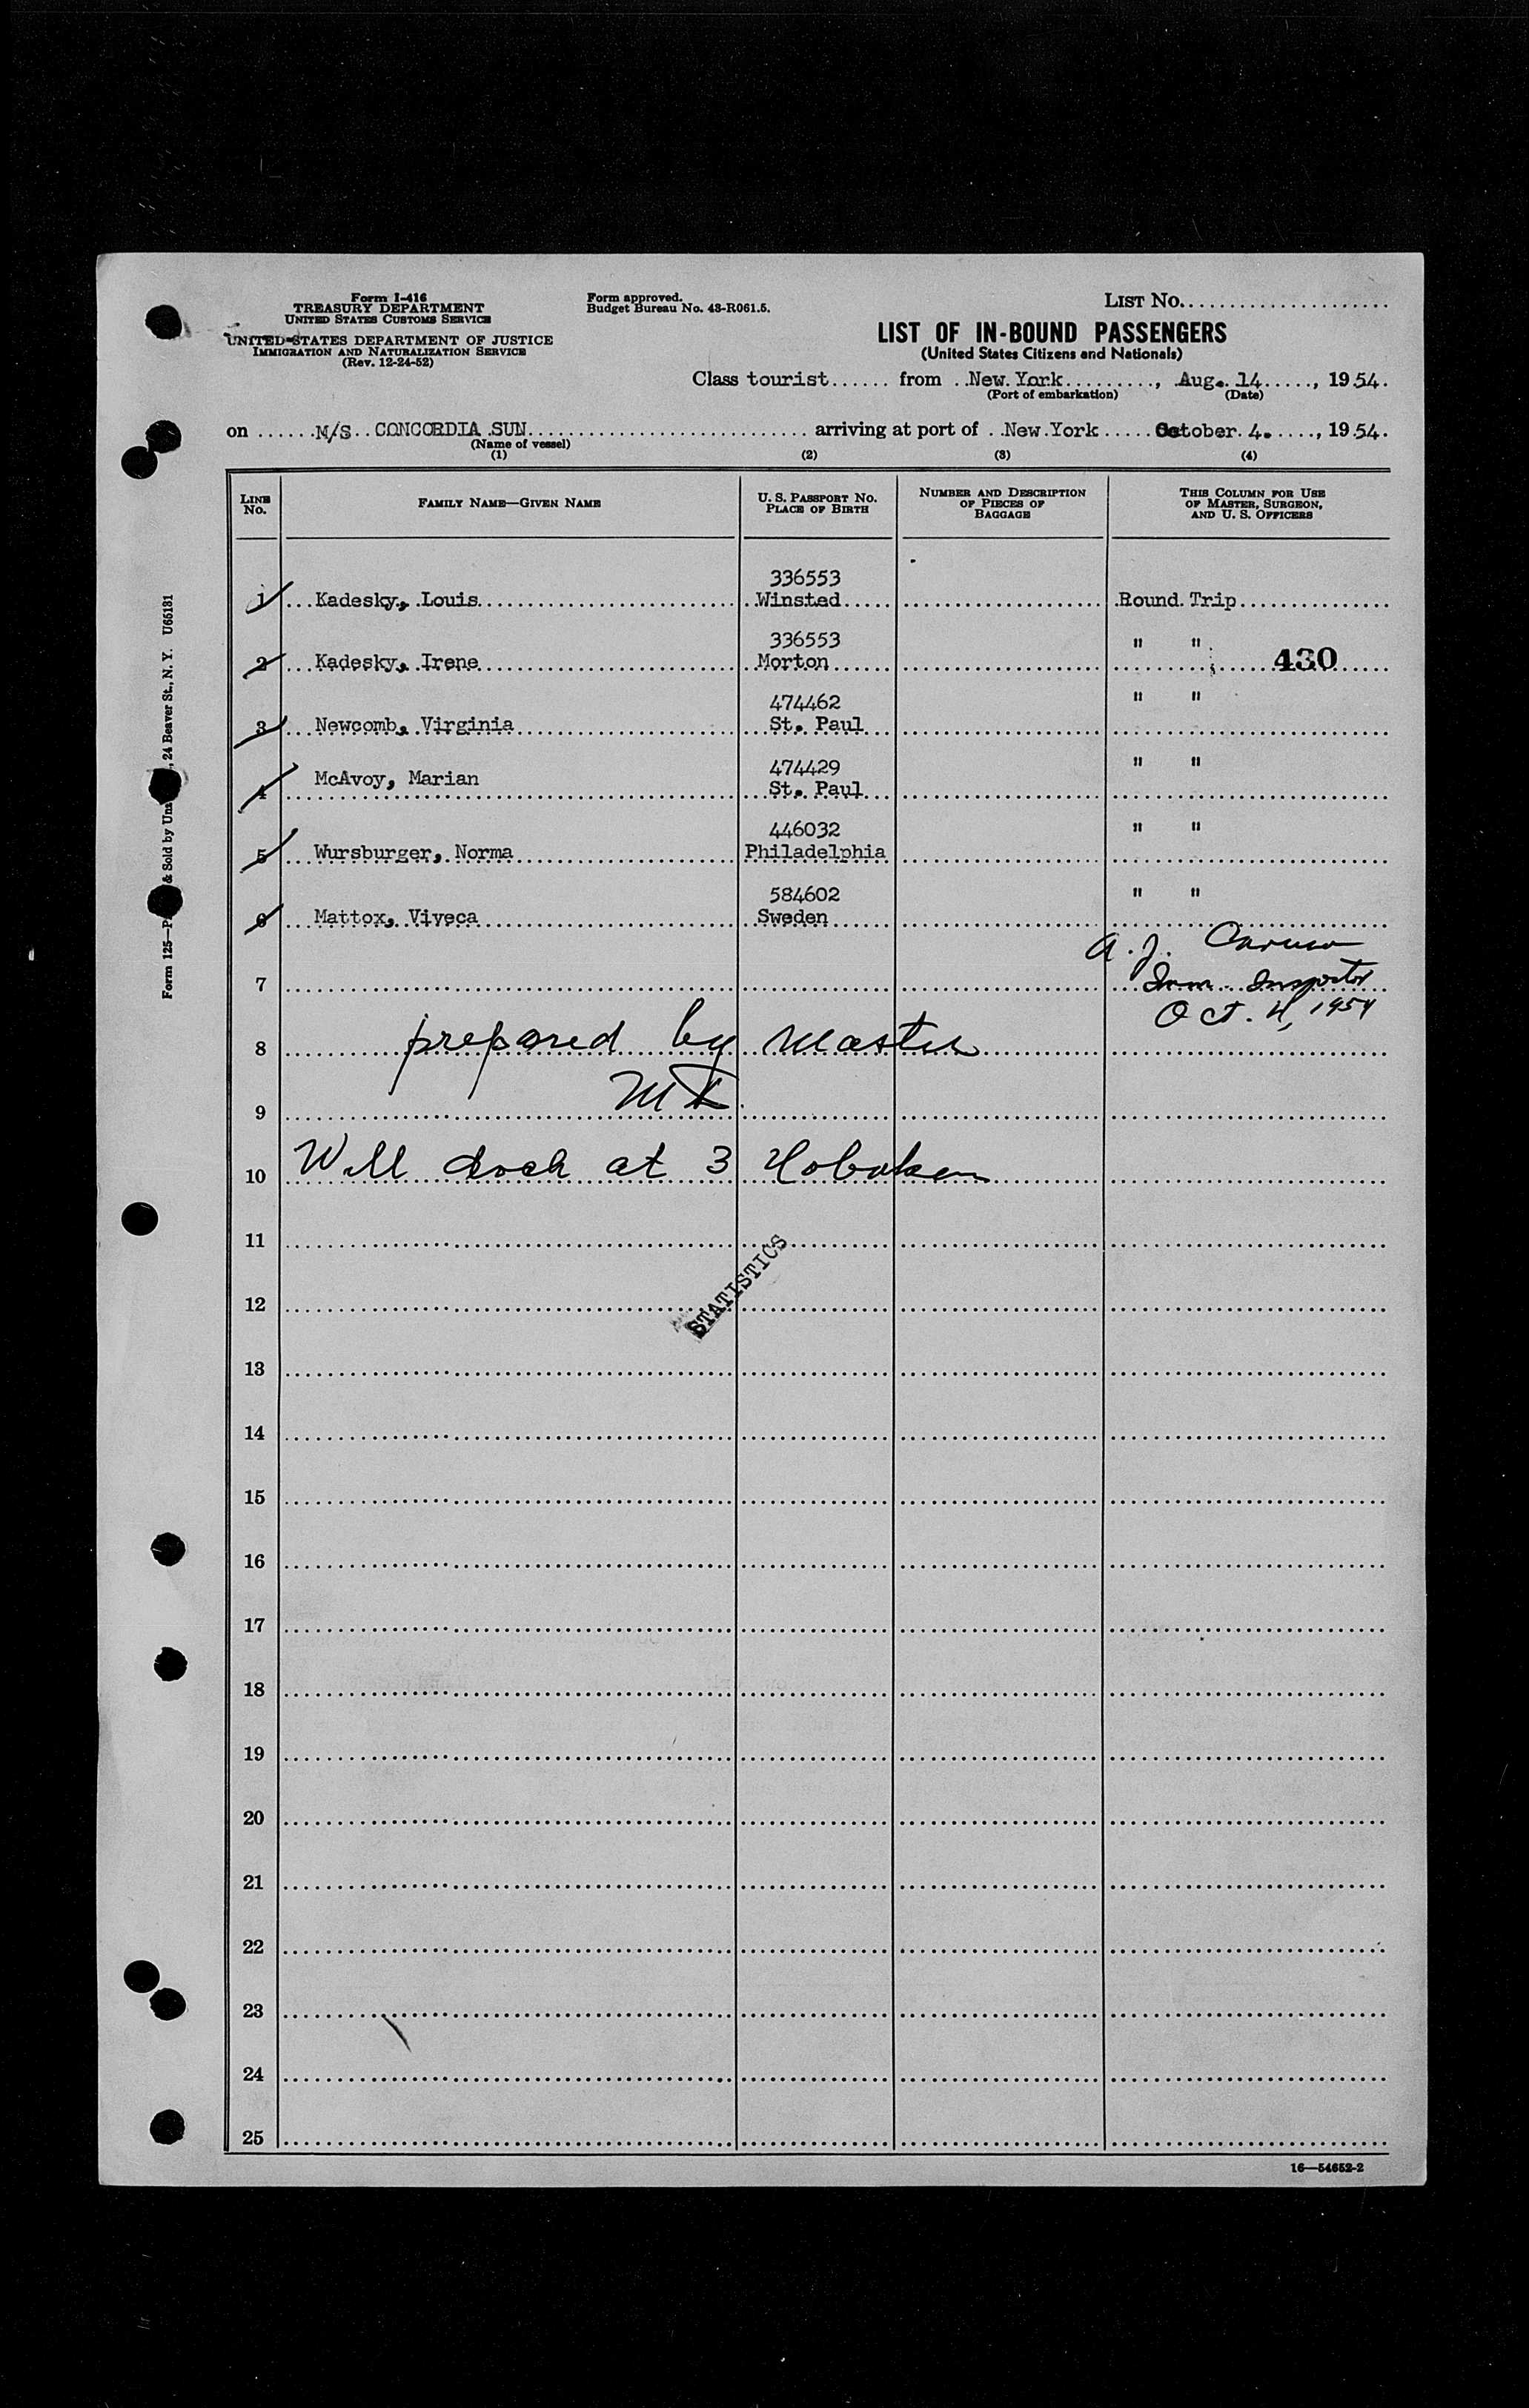 Form I-416
TREASURY DEPARTMENT
UNITED STATES CUSTOMS SERVICE
UNITED STATES DEPARTMENT OF JUSTICE
IMMIGRATION AND NATURALIZATION SERVICE
(Rev. 12-24-52)
Form approved.
Budget Bureau No. 43-R061.5.
LIST NO.
LIST OF IN-BOUND PASSENGERS
(United States Citizens and Nationals)
Class tourist from New York, Aug. 14, 1954.
(Port of embarkation) (Date)
on M/S CONCORDIA SUN arriving at port of New York October 4., 1954.
(Name of vessel)
(1) (2) (3) (4)
LINE NO. FAMILY NAME—GIVEN NAME U. S. PASSPORT NO. PLACE OF BIRTH NUMBER AND DESCRIPTION OF PIECES OF BAGGAGE THIS COLUMN FOR USE OF MASTER, SURGEON, AND U. S. OFFICERS
336553
1 Kadesky, Louis Winsted Round Trip
336553 " "
2 Kadesky, Irene Morton 430
474462 " "
3 Newcomb, Virginia St. Paul
474429 " "
4 McAvoy, Marian St. Paul
446032 " "
5 Wursburger, Norma Philadelphia
584602 " "
6 Mattox, Viveca Sweden
A. J. Caruso
7 Imm. Inspector
Oct. 4, 1954
8 prepared by Master
9
10 Will dock at 3 Hoboken
11
STATISTICS
12
13
14
15
16
17
18
19
20
21
22
23
24
25
16—54652-2
Form 125— & Sold by , 24 Beaver St., N. Y. U65131